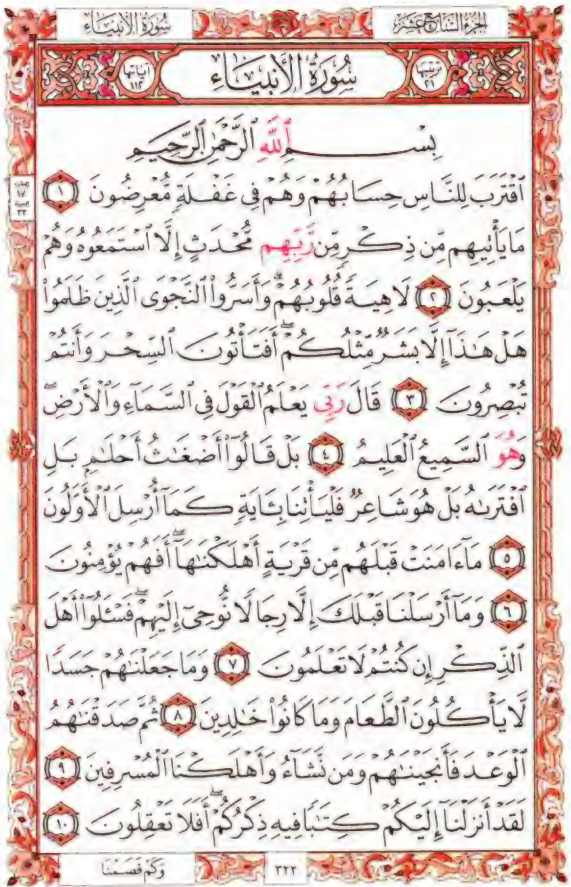 الجزء السابع عشر
سُورَةُ الأَنبيَاءِ
ترتيبها ٢١
سُورَةُ الأَنبيَاءِ
آياتها ١١٢
بِسْمِ ٱللَّهِ ٱلرَّحْمَٰنِ ٱلرَّحِيمِ
ٱقْتَرَبَ لِلنَّاسِ حِسَابُهُمْ وَهُمْ فِى غَفْلَةٍ مُّعْرِضُونَ ١
مَا يَأْتِيهِم مِّن ذِكْرٍ مِّن رَّبِّهِم مُّحْدَثٍ إِلَّا ٱسْتَمَعُوهُ وَهُمْ
يَلْعَبُونَ ٢ لَاهِيَةً قُلُوبُهُمْ ۗ وَأَسَرُّوا۟ ٱلنَّجْوَى ٱلَّذِينَ ظَلَمُوا۟
هَلْ هَٰذَآ إِلَّا بَشَرٌ مِّثْلُكُمْ ۖ أَفَتَأْتُونَ ٱلسِّحْرَ وَأَنتُمْ
تُبْصِرُونَ ٣ قَالَ رَبِّى يَعْلَمُ ٱلْقَوْلَ فِى ٱلسَّمَآءِ وَٱلْأَرْضِ ۖ
وَهُوَ ٱلسَّمِيعُ ٱلْعَلِيمُ ٤ بَلْ قَالُوٓا۟ أَضْغَٰثُ أَحْلَٰمٍۭ بَلِ
ٱفْتَرَىٰهُ بَلْ هُوَ شَاعِرٌ فَلْيَأْتِنَا بِـَٔايَةٍ كَمَآ أُرْسِلَ ٱلْأَوَّلُونَ
٥ مَآ ءَامَنَتْ قَبْلَهُم مِّن قَرْيَةٍ أَهْلَكْنَٰهَآ ۖ أَفَهُمْ يُؤْمِنُونَ
٦ وَمَآ أَرْسَلْنَا قَبْلَكَ إِلَّا رِجَالًا نُّوحِىٓ إِلَيْهِمْ ۖ فَسْـَٔلُوٓا۟ أَهْلَ
ٱلذِّكْرِ إِن كُنتُمْ لَا تَعْلَمُونَ ٧ وَمَا جَعَلْنَٰهُمْ جَسَدًا
لَّا يَأْكُلُونَ ٱلطَّعَامَ وَمَا كَانُوا۟ خَٰلِدِينَ ٨ ثُمَّ صَدَقْنَٰهُمُ
ٱلْوَعْدَ فَأَنجَيْنَٰهُمْ وَمَن نَّشَآءُ وَأَهْلَكْنَا ٱلْمُسْرِفِينَ ٩
لَقَدْ أَنزَلْنَآ إِلَيْكُمْ كِتَٰبًا فِيهِ ذِكْرُكُمْ ۖ أَفَلَا تَعْقِلُونَ ١٠
٣٢٢
وَكَمْ قَصَمْنَا